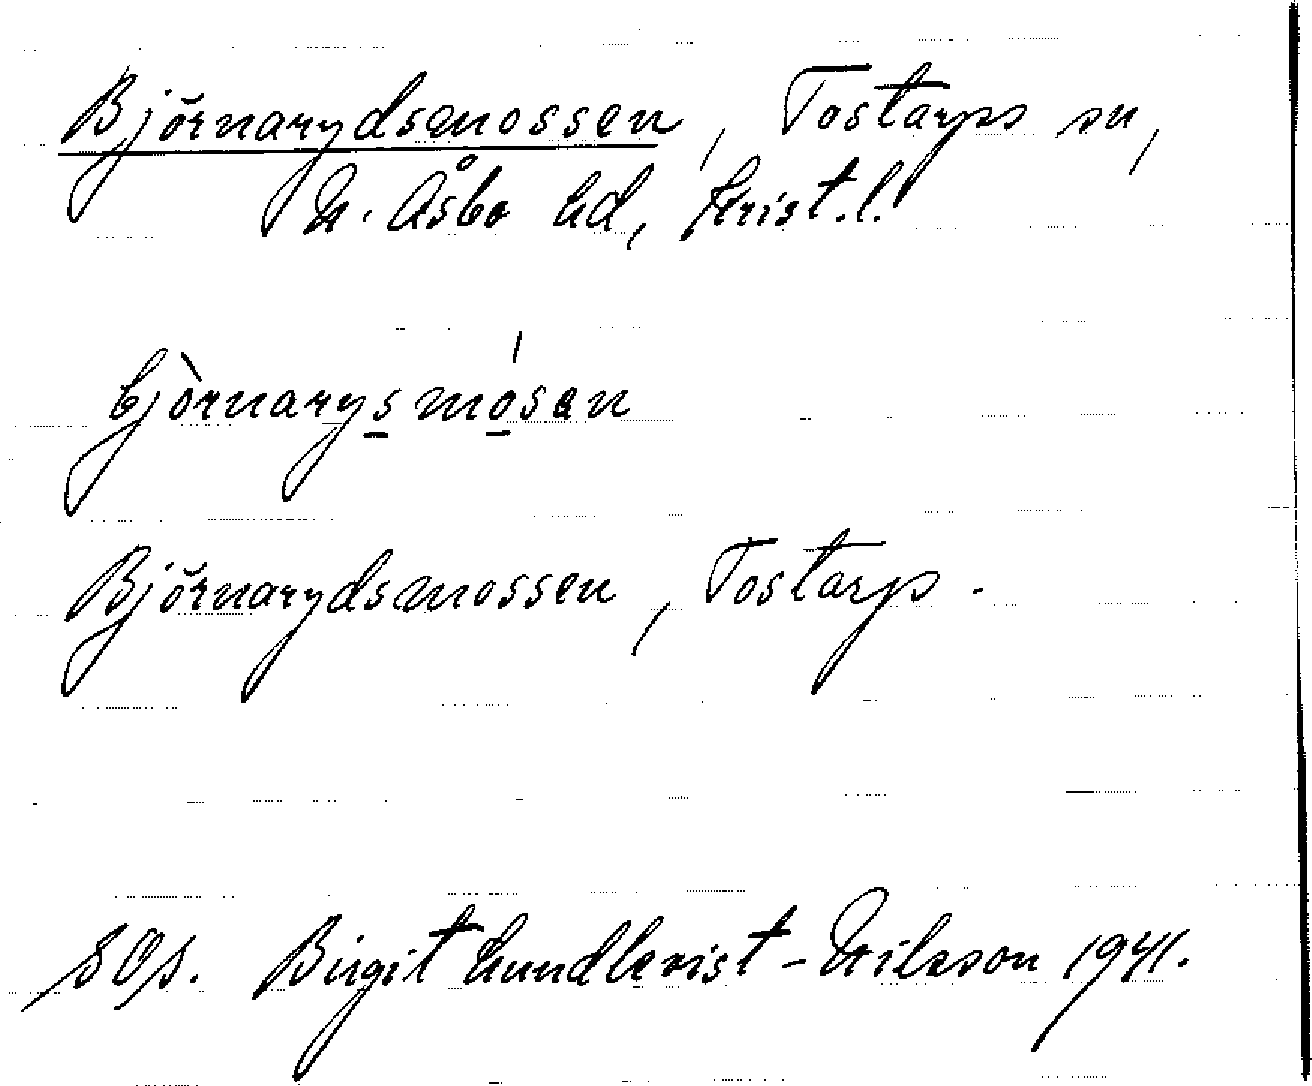 Björnarydsmossen, Tostarps sn,
N. Åsbo hd, Krist. l.
bjòrnarysmósen
Björnarydsmossen, Tostarp.
SOp. Birgit Lundkvist-Nilsson 1941.